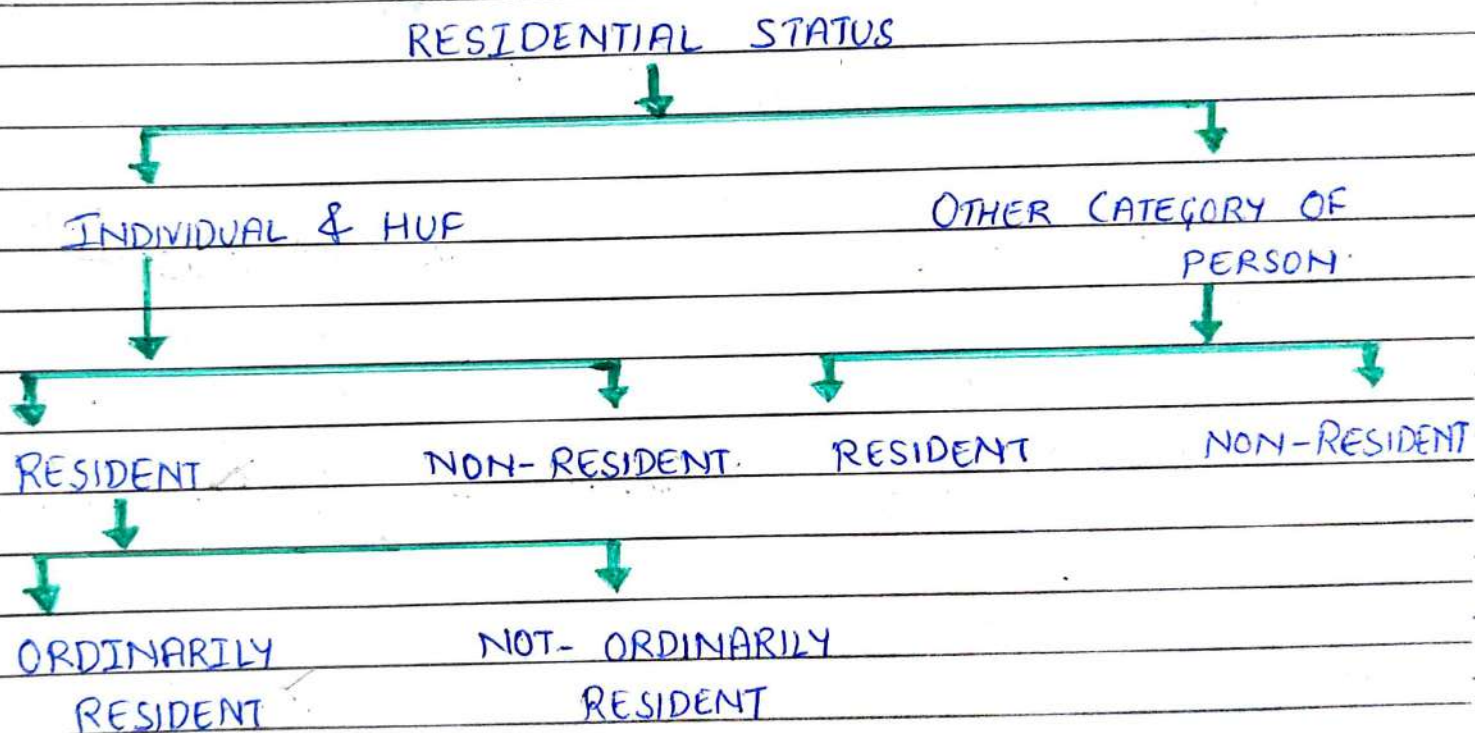 RESIDENTIAL STATUS
INDIVIDUAL & HUF
OTHER CATEGORY OF
PERSON.
RESIDENT
NON-RESIDENT.
RESIDENT
NON-RESIDENT
ORDINARILY
RESIDENT
NOT- ORDINARILY
RESIDENT